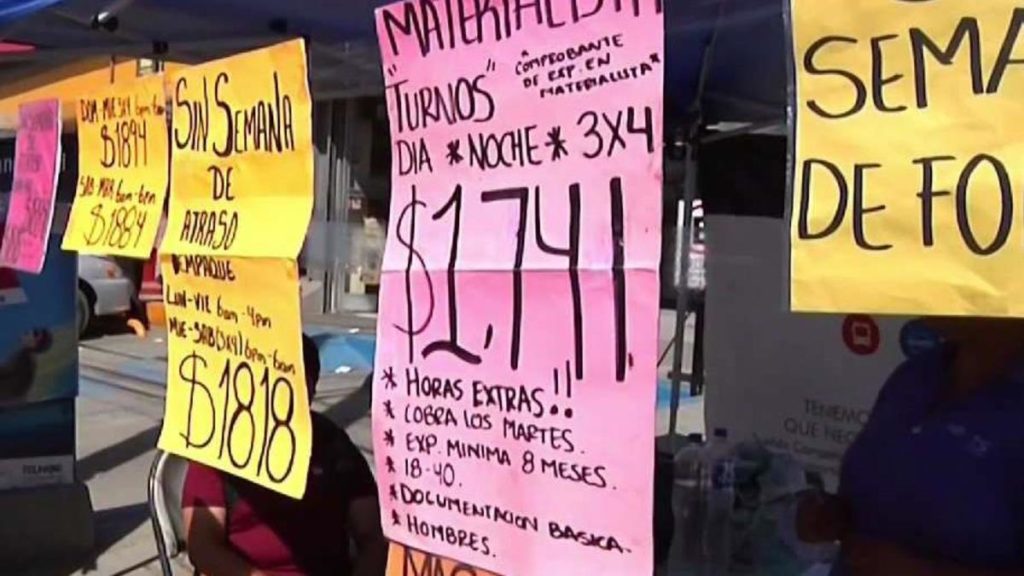 DOM-MIE 3X4 6am-6am
$1894
SAB-MAR 6am-6pm
$1884
SIN SEMANA
DE
ATRASO
*EMPAQUE
LUN-VIE 6am-4pm
MIE-SAB(3X4) 6pm-6am
$1818
MATERIALISTA
"TURNOS"
*COMPROBANTE
DE EXP. EN
MATERIALISTA*
DIA * NOCHE * 3X4
$1,741
* HORAS EXTRAS!!
* COBRA LOS MARTES.
* EXP. MINIMA 8 MESES.
* 18-40.
*DOCUMENTACION BASICA.
* HOMBRES.
SEMA
DE FO
TENEMO
QUE NEC